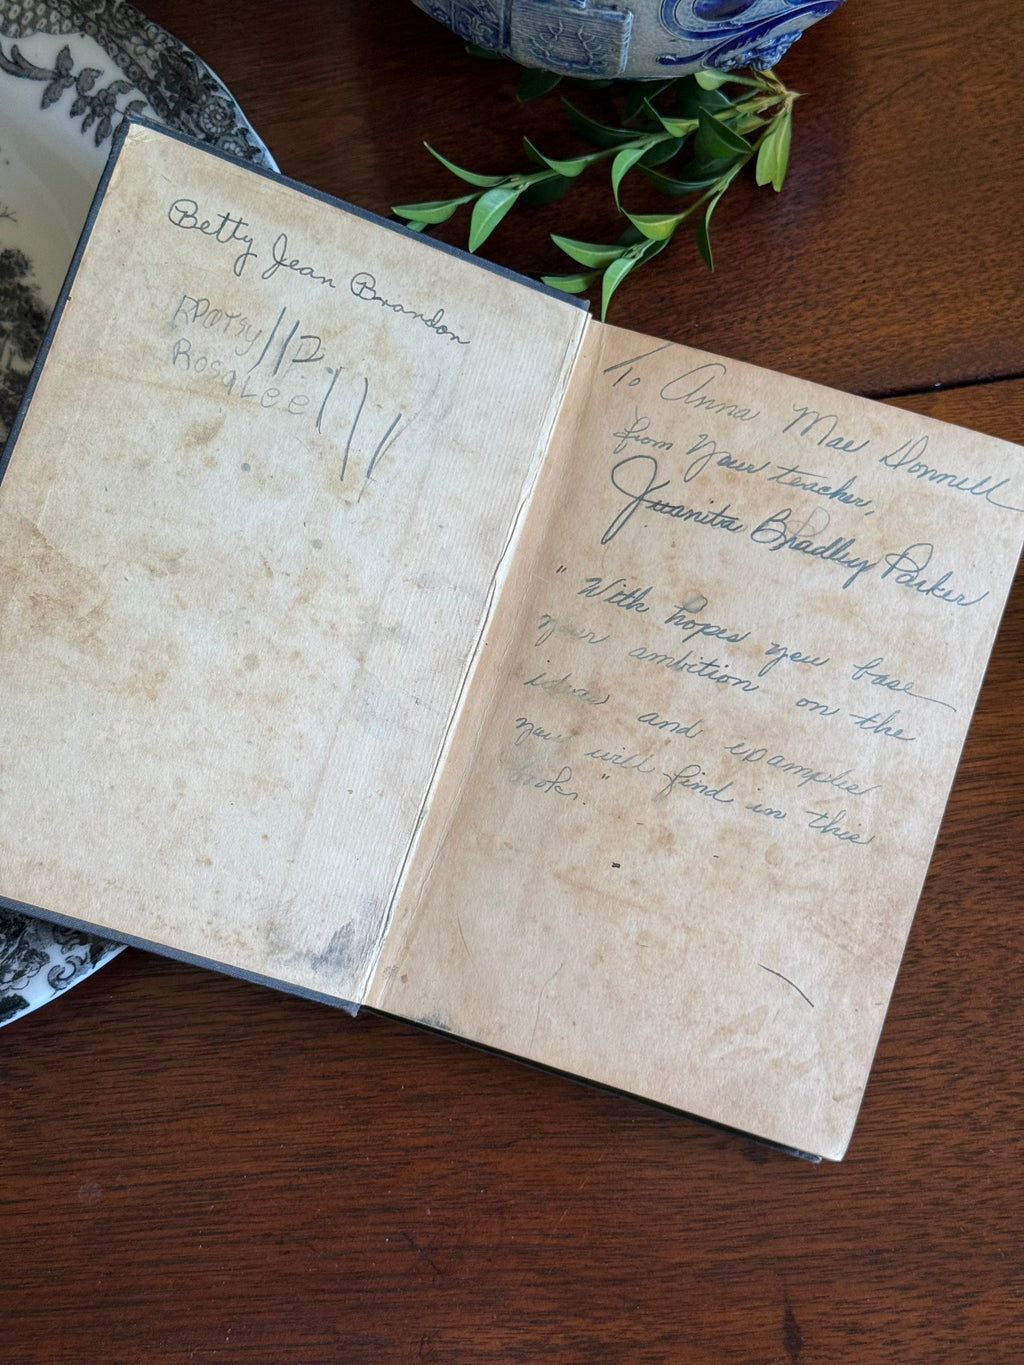 Betty Jean Brandon
112
RosaLee
To Anna Mae Donnell
from Your teacher,
Juanita Bradley Parker
"With hopes you base
your ambition on the
ideas and examples
you will find in this
book."